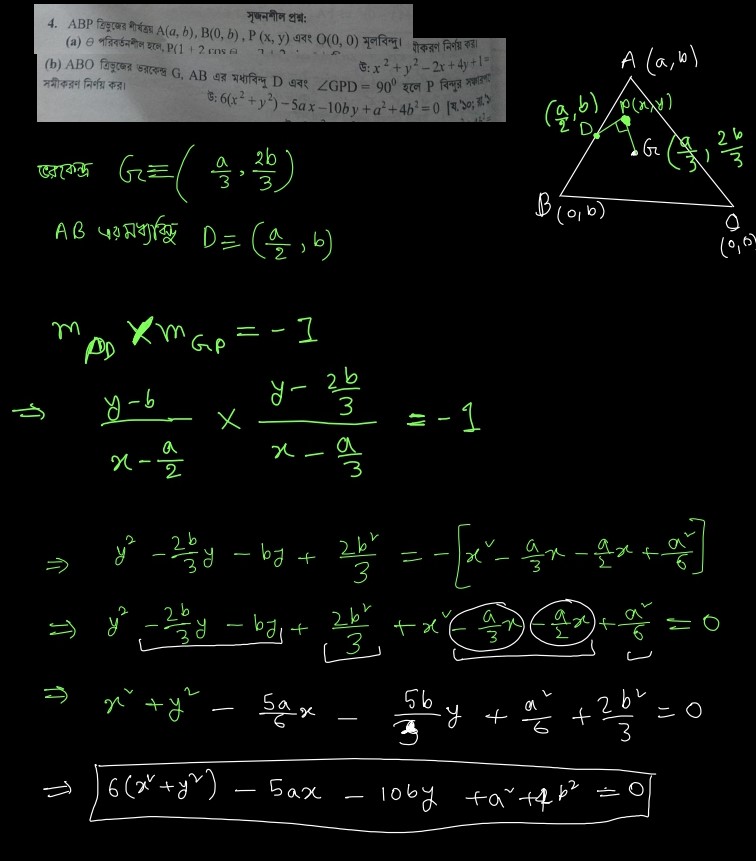 সৃজনশীল প্রশ্ন:
4. ABP ত্রিভুজের শীর্ষত্রয় A(a, b), B(0, b), P (x, y) এবং O(0, 0) মূলবিন্দু।
(a) θ পরিবর্তনশীল হলে, P(1 + 2 cos θ
সমীকরণ নির্ণয় কর।
উ: x² + y² – 2x + 4y + 1 =
(b) ABO ত্রিভুজের ভরকেন্দ্র G, AB এর মধ্যবিন্দু D এবং ∠GPD = 90⁰ হলে P বিন্দুর সঞ্চারপথের
সমীকরণ নির্ণয় কর।
উ: 6(x² + y²) – 5ax – 10by + a² + 4b² = 0 [য.'১০; রা.'১
A (a, b)
(a/2, b) P(x, y)
D
G (a/3, 2b/3)
B (0, b)
O
(0, 0)
ভরকেন্দ্র G ≡ (a/3, 2b/3)
AB এর মধ্যবিন্দু D ≡ (a/2, b)
m_PD × m_GP = -1
⇒ (y - b)/(x - a/2) × (y - 2b/3)/(x - a/3) = -1
⇒ y² - 2b/3 y - by + 2b²/3 = -[x² - a/3 x - a/2 x + a²/6]
⇒ y² - 2b/3 y - by + 2b²/3 + x² - a/3 x - a/2 x + a²/6 = 0
⇒ x² + y² - 5a/6 x - 5b/3 y + a²/6 + 2b²/3 = 0
⇒ 6(x² + y²) - 5ax - 10by + a² + 4b² = 0